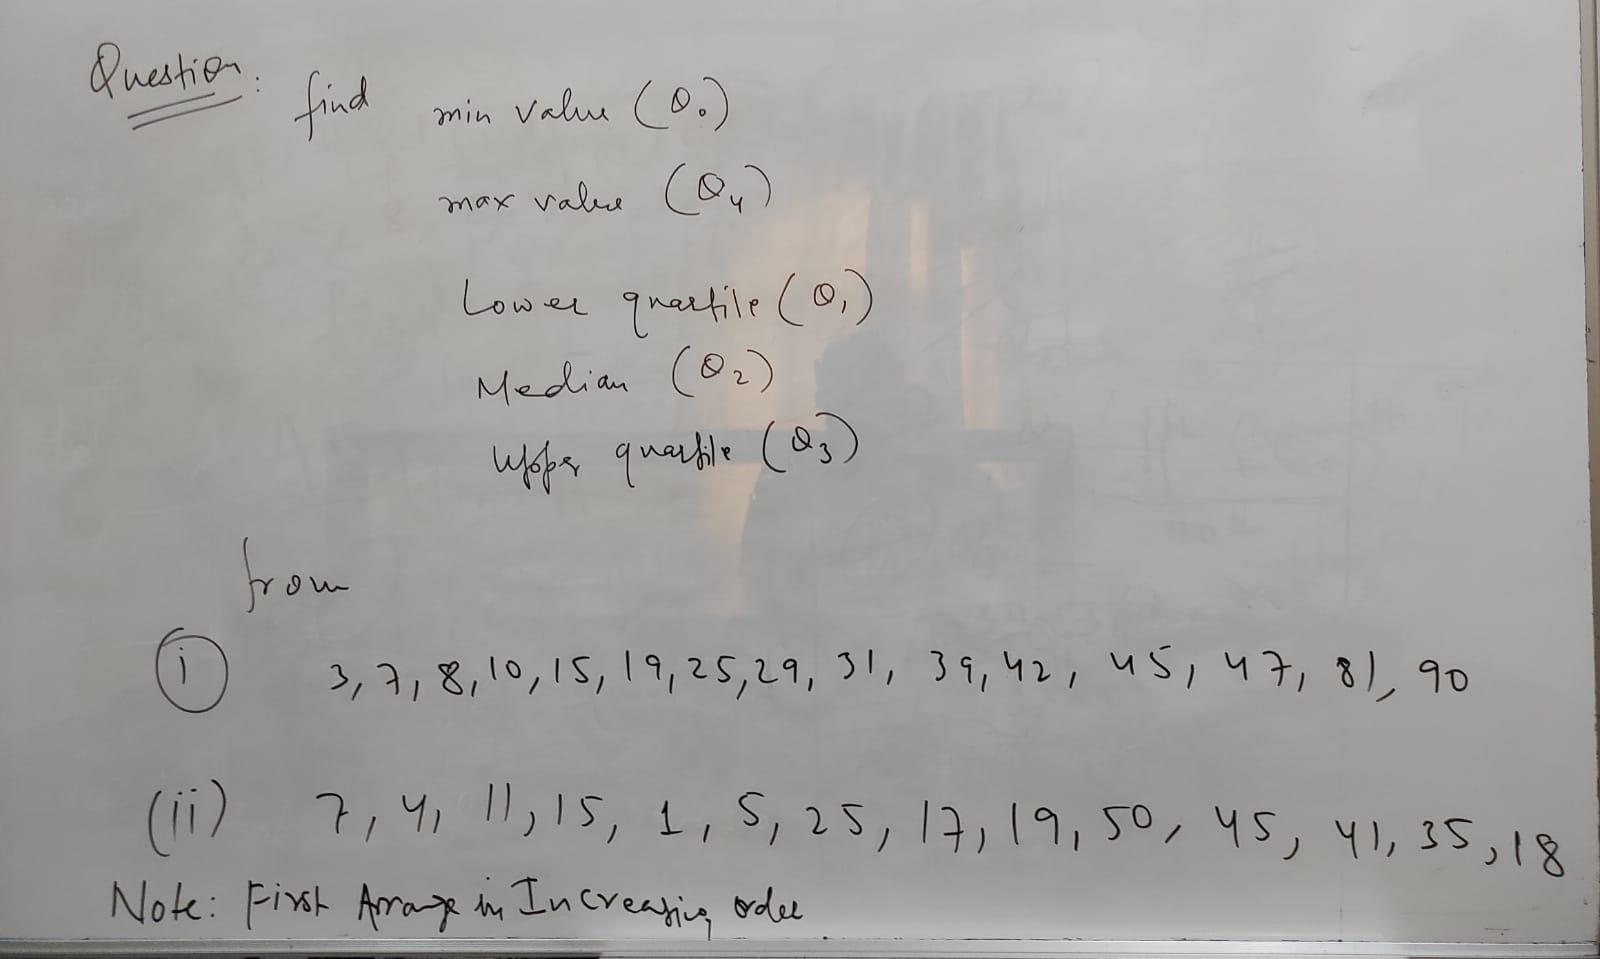 Question: find min value (Q₀)
max value (Q₄)
Lower quartile (Q₁)
Median (Q₂)
Upper quartile (Q₃)
from
(i) 3, 7, 8, 10, 15, 19, 25, 29, 31, 39, 42, 45, 47, 81, 90
(ii) 7, 4, 11, 15, 1, 5, 25, 17, 19, 50, 45, 41, 35, 18
Note: First Arrange in Increasing order